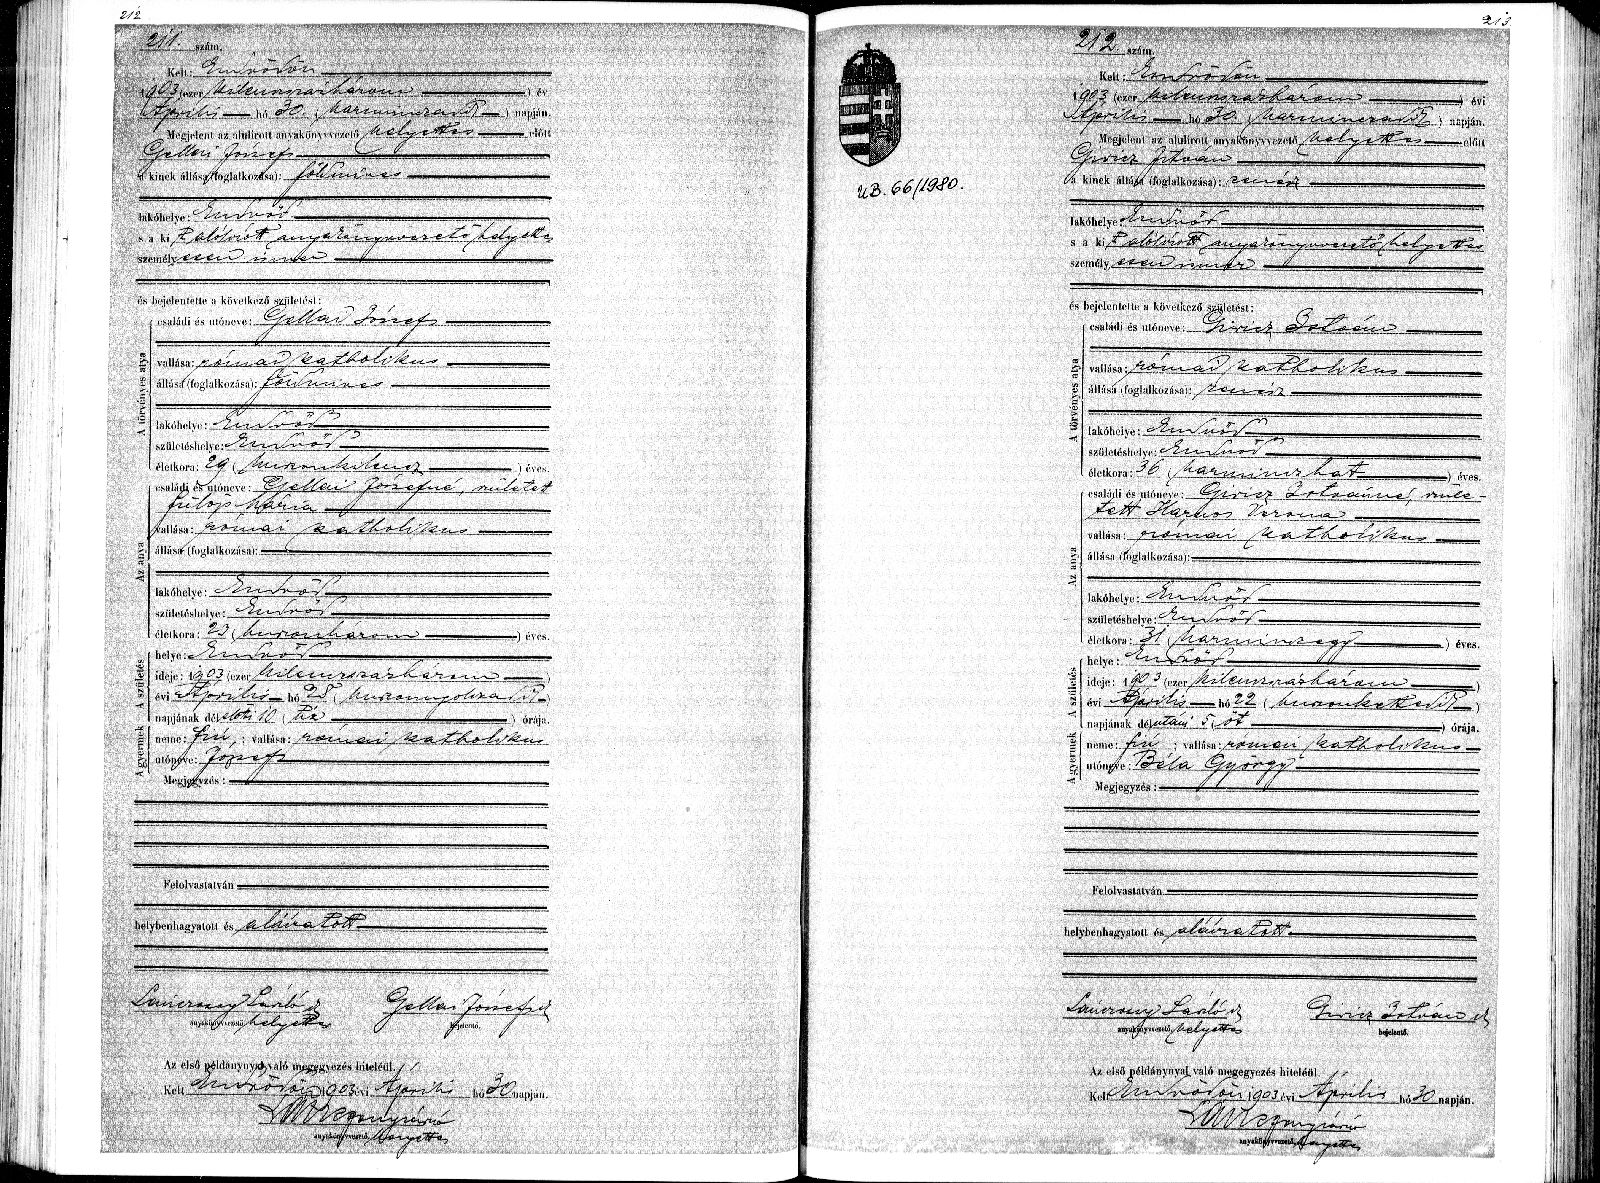 212
211. szám.
Kelt: Endrődön
1903 (ezer kilenczszázhárom) év
Április hó 30. (harminczadik) napján.
Megjelent az alulirott anyakönyvvezető helyettes előtt
Gellai József
a kinek állása (foglalkozása): földmives
lakóhelye: Endrőd
s a ki t alólirott anyakönyvvezető helyettes
személyesen ismer
és bejelentette a következő születést:
A törvényes atya
családi és utóneve: Gellai József
vallása: római katholikus
állása (foglalkozása): földmives
lakóhelye: Endrőd
születéshelye: Endrőd
életkora: 29 (huszonkilencz) éves.
Az anya
családi és utóneve: Gellai Józsefné, született
Fülöp Mária
vallása: római katholikus
állása (foglalkozása):
lakóhelye: Endrőd
születéshelye: Endrőd
életkora: 23 (huszonhárom) éves.
A születés
helye: Endrőd
ideje: 1903 (ezer kilenczszázhárom)
évi Április hó 28 (huszonnyolczadik)
napjának délelőtti 10 (tíz) órája.
A gyermek
neme: fiú, ; vallása: római katholikus
utóneve: József
Megjegyzés:
Felolvastatván
helybenhagyatott és aláiratott
László
Gellai József
anyakönyvvezető helyettes
bejelentő.
Az első példánynyal való megegyezés hiteléül.
Kelt Endrődön 1903 évi Április hó 30 napján.
anyakönyvvezető helyettes
213
UB. 66/1980.
212 szám.
Kelt: Endrődön
1903 (ezer kilenczszázhárom) évi
Április hó 30. (harminczadik) napján.
Megjelent az alulirott anyakönyvvezető helyettes előtt
Giricz István
a kinek állása (foglalkozása): kanász
lakóhelye: Endrőd
s a ki t alólirott anyakönyvvezető helyettes
személyesen ismer
és bejelentette a következő születést:
A törvényes atya
családi és utóneve: Giricz István
vallása: római katholikus
állása (foglalkozása): kanász
lakóhelye: Endrőd
születéshelye: Endrőd
életkora: 36 (harminczhat) éves.
Az anya
családi és utóneve: Giricz Istvánné, szüle-
tett Harnos Verona
vallása: római katholikus
állása (foglalkozása):
lakóhelye: Endrőd
születéshelye: Endrőd
életkora: 31 (harminczegy) éves.
A születés
helye: Endrőd
ideje: 1903 (ezer kilenczszázhárom)
évi Április hó 22 (huszonkettedik)
napjának délutáni 5 (öt) órája.
A gyermek
neme: fiú ; vallása: római katholikus
utóneve: Béla György
Megjegyzés:
Felolvastatván
helybenhagyatott és aláiratott
László
Giricz István
anyakönyvvezető helyettes
bejelentő.
Az első példánynyal való megegyezés hiteléül.
Kelt Endrődön 1903 évi Április hó 30 napján.
anyakönyvvezető helyettes